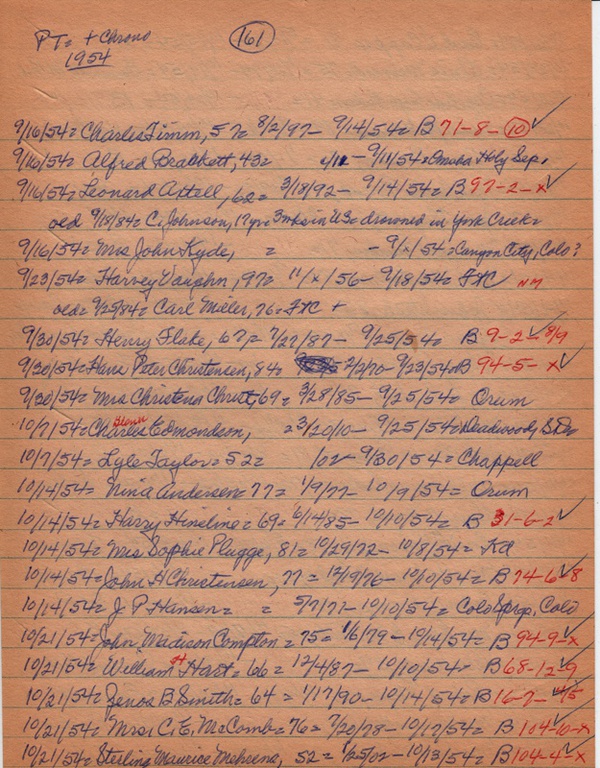 PT= + Chrono (161)
1954
9/16/54= Charles Timm, 57= 8/2/97- 9/14/54= B 71-8-(10) ✓
9/16/54= Alfred 43= - 9/11/54= Omaha Holy Sep.
9/16/54= Leonard Axtell, 62= 3/18/92- 9/14/54= B 97-2-x ✓
old 9/18/84= C. Johnson, 17yr 3 in US= drowned in York Creek=
9/16/54= Mrs John Kyde, = - 9/x/54= Canyon City, Colo?
9/23/54= Harvey Vaughn, 97= 11/x/56- 9/18/54= FXC NM
old= 9/25/84= Carl Miller, 76= FXC +
9/30/54= Henry Flake, 67,= 7/27/87- 9/25/54= B 9-2- 8/9
9/30/54= Hans Peter Christensen, 84= 2/2/70- 9/23/54= B 94-5-x ✓
9/30/54= Mrs Christena Christ, 69= 3/28/85- 9/25/54= Orum
10/7/54= Charles Edmondson, = 3/20/10- 9/25/54= Deadwood, S.D.
10/7/54= Lyle Taylor= 52= /02- 9/30/54= Chappell
10/14/54= Nina Andersen= 77= 1/9/77- 10/9/54= Orum
10/14/54= Harry Hineline= 69= 6/14/85- 10/10/54= B 31-6-2 ✓
10/14/54= Mrs Sophie Plugge, 81= 10/29/72- 10/8/54= Ka
10/14/54= John H Christensen, 77= 12/9/76- 10/10/54= B 74-6-8 ✓
10/14/54= J. P. Hansen= = 5/7/77- 10/10/54= Colo Sprgs, Colo
10/21/54= John Madison Compton= 75= 1/6/79- 10/14/54= B 94-9-x ✓
10/21/54= William H Hart= 66= 12/4/87- 10/10/54= B 68-12-9 ✓
10/21/54= Zenos B Smith= 64= 1/17/90- 10/14/54= B 16-7- 4/5
10/21/54= Mrs. C. E. McComb= 76= 7/20/78- 10/17/54= B 104-10-x ✓
10/21/54= Sterling Maurice Mehrens, 52= 1/25/02- 10/13/54= B 104-4-x ✓